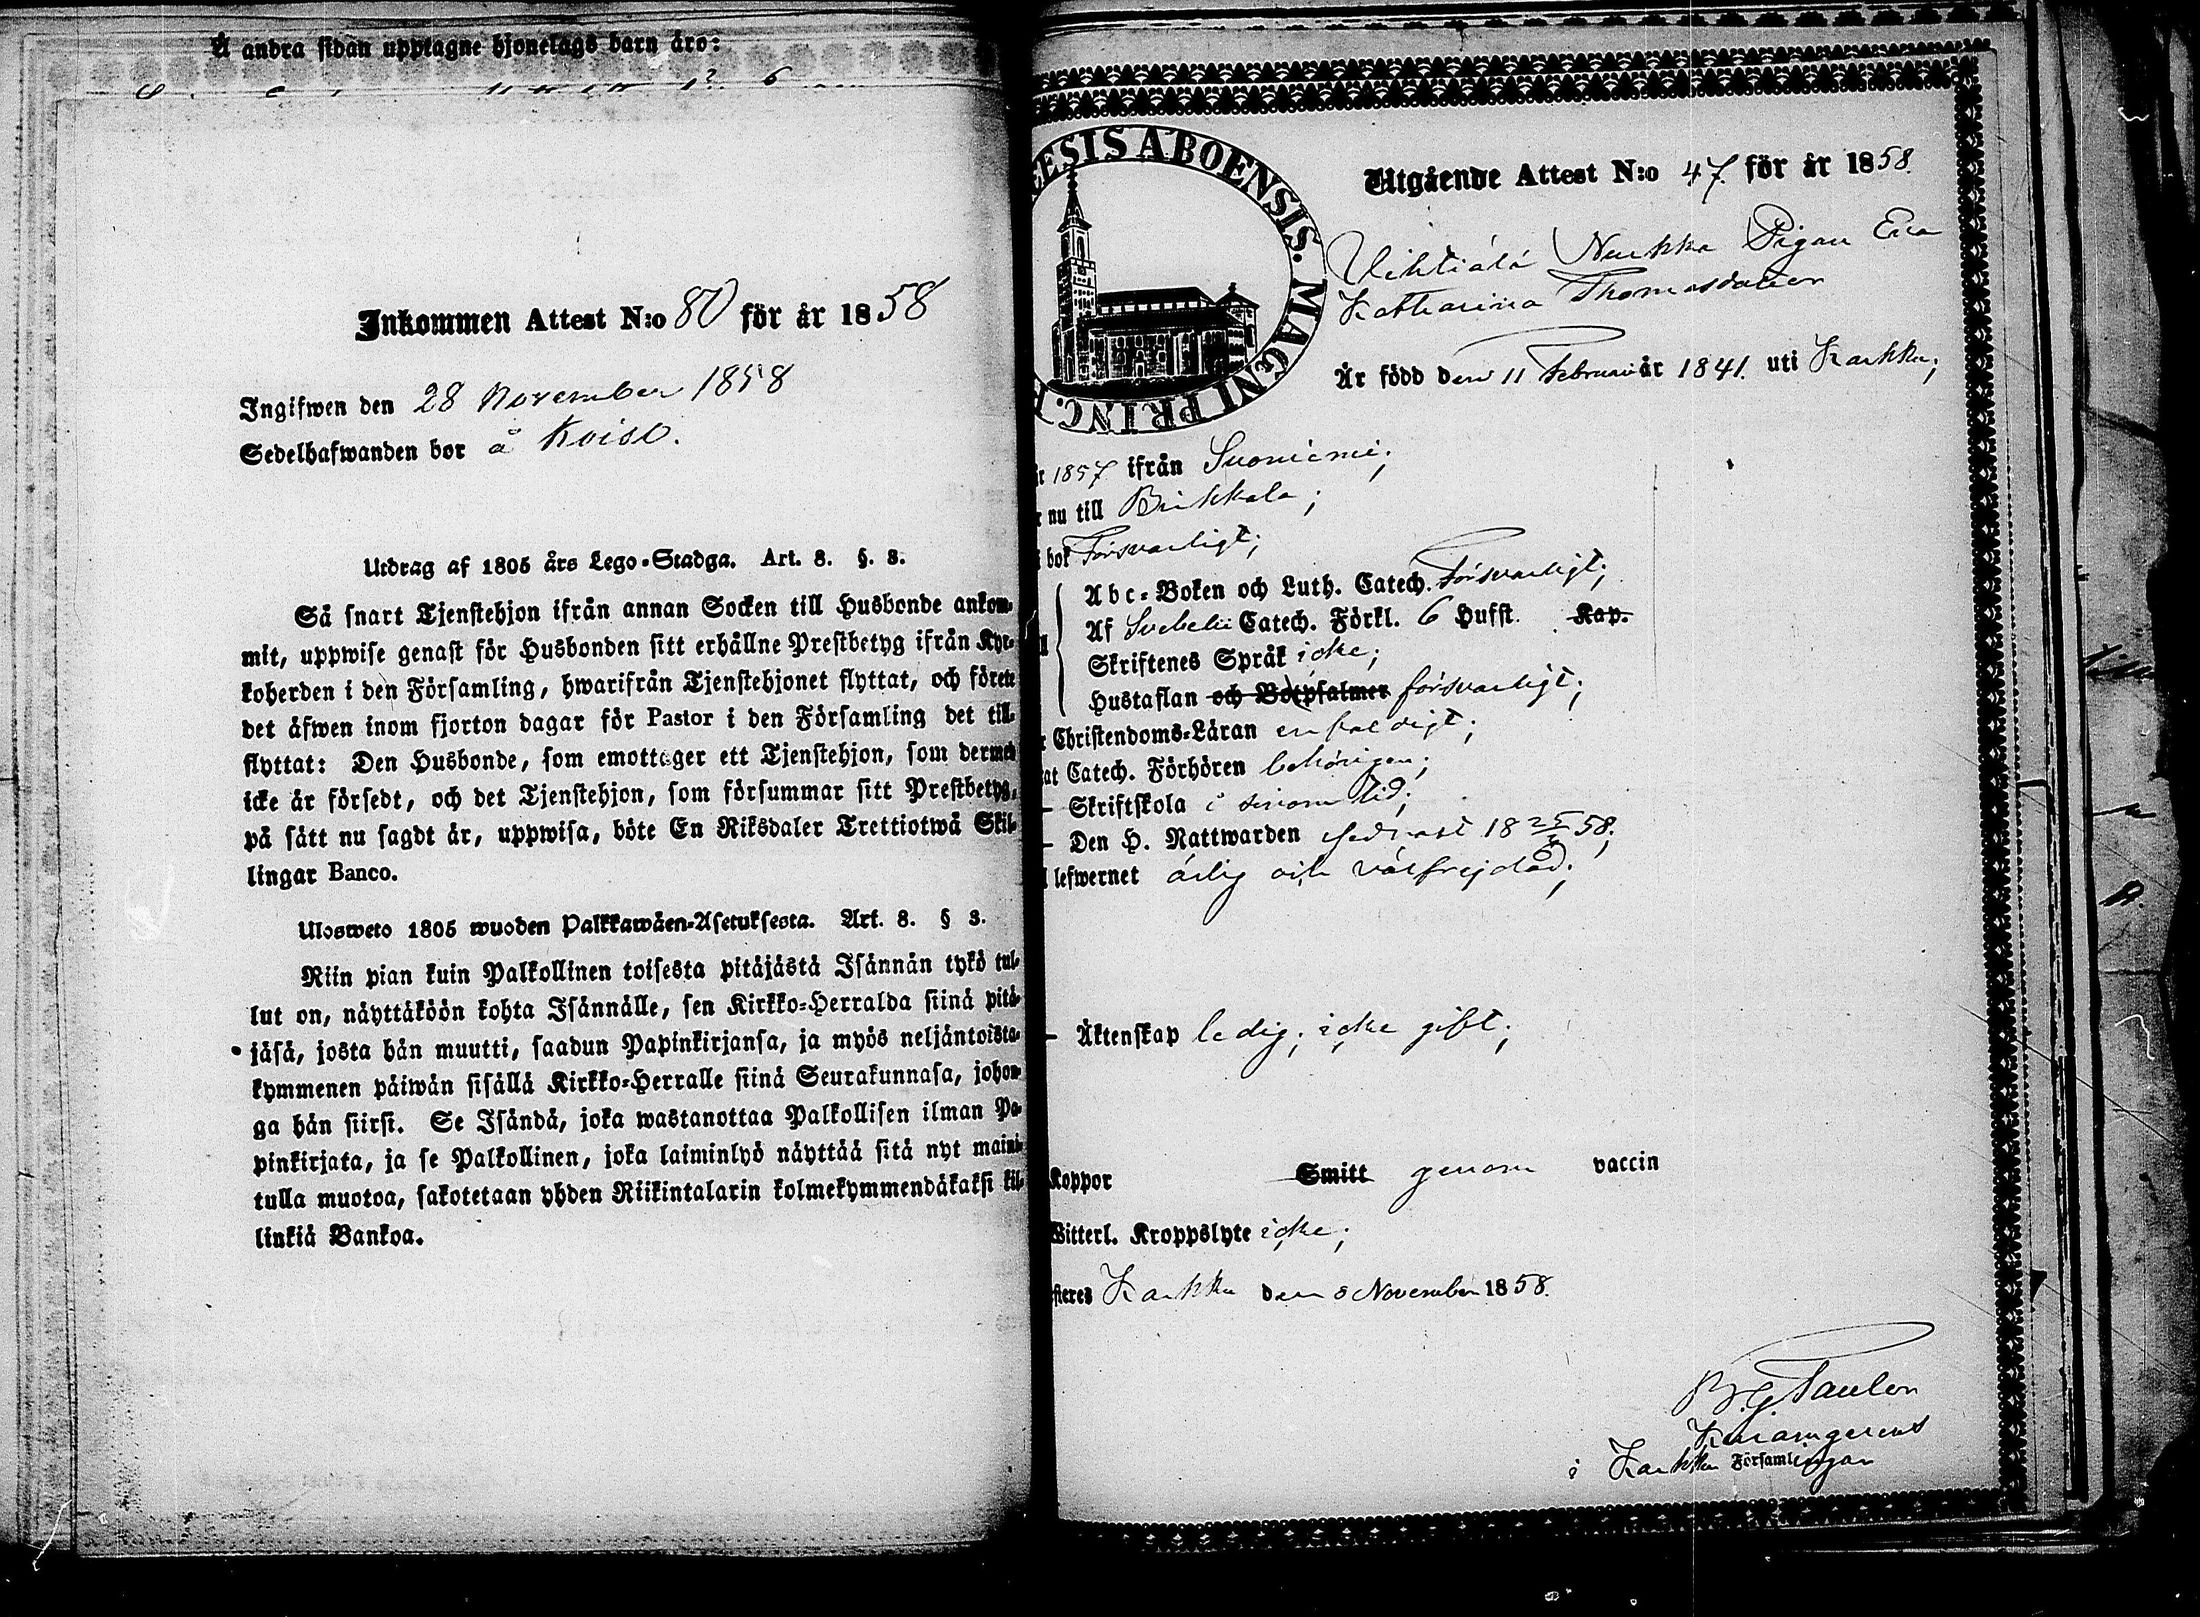 Å andra sidan upptagne hjonelags barn äro:
Inkommen Attest N:o 80 för år 1858
Ingifwen den 28 November 1858
Sedelhafwanden bor å Koiso.
Utdrag af 1805 års Lego-Stadga. Art. 8. §. 3.
Så snart Tjenstehjon ifrån annan Socken till Husbonde ankom-
mit, uppwise genast för Husbonden sitt erhållne Prestbetyg ifrån Kyr-
koherden i den Församling, hwarifrån Tjenstehjonet flyttat, och förete
det äfwen inom fjorton dagar för Pastor i den Församling det till-
flyttat: Den Husbonde, som emottager ett Tjenstehjon, som dermed
icke är försedt, och det Tjenstehjon, som försummar sitt Prestbetyg,
på sätt nu sagdt är, uppwisa, böte En Riksdaler Trettiotwå Skil-
lingar Banco.
Ulosweto 1805 wuoden Palkkawäen-Asetuksesta. Art. 8. § 3.
Niin pian kuin Palkollinen toisesta pitäjästä Isännän tykö tul-
lut on, näyttäköön kohta Isännälle, sen Kirkko-Herralda siinä pitä-
jäsä, josta hän muutti, saadun Papinkirjansa, ja myös neljäntoista-
kymmenen päiwän sisällä Kirkko-Herralle siinä Seurakunnasa, johon-
ga hän siirsi. Se Isändä, joka wastanottaa Palkollisen ilman Pa-
pinkirjata, ja se Palkollinen, joka laiminlyö näyttää sitä nyt maini-
tulla muotoa, sakotetaan yhden Riikintalarin kolmekymmendäkaksi kil-
linkiä Bankoa.
ESIS ABOENSIS. MAGNI PRINC.
Utgående Attest N:o 47. för år 1858.
Vihtiälä Neukka Pigan Eva
Katharina Thomasdotter
Är född den 11 Februari år 1841. uti Karkku;
1857 ifrån Suoniemi;
nu till Birkkala;
bok Försvarligt;
Abc-Boken och Luth. Catech. Försvarligt;
Af Svebelii Catech. Förkl. 6 Hufst. Kap.
Skriftenes Språk icke;
Hustaflan och Botpsalmer försvarligt;
Christendoms-Läran enfaldigt;
Catech. Förhören behörigen;
— Skriftskola i sinom tid;
— Den H. Nattwarden sednast 18 58;
lefwernet ärlig och välfrejdad;
— Äktenskap ledig; icke gift;
Koppor Smitt genom vaccin
Witterl. Kroppslyte icke;
Karkku den 8 November 1858.
B. G. Paulen
i Karkku Församlingar